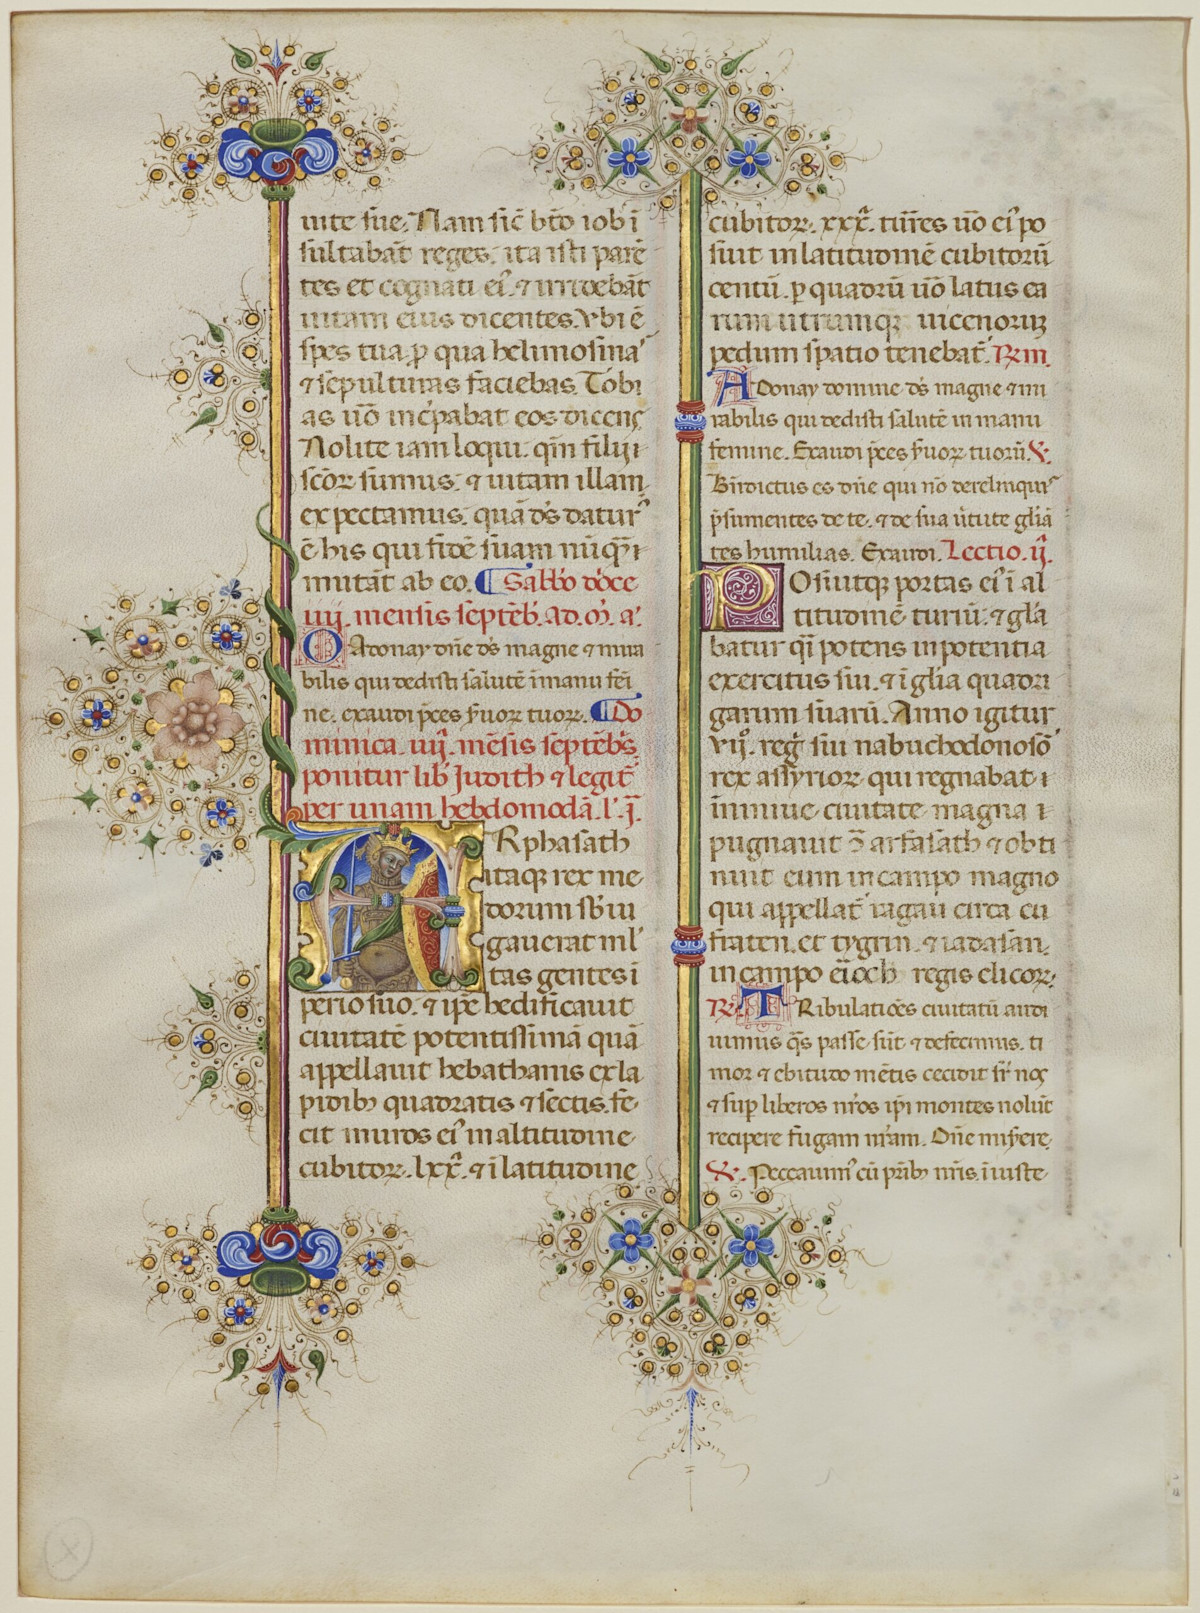 uite sue. Nam sic̃ bt̃o iob ĩ
sultabãt reges. ita isti parẽ
tes et cognati ei᷒. ⁊ irridebãt
uitam eius dicentes. Vbi ẽ
spes tua. ꝑ qua helimosinas
⁊ sepulturas faciebas. Tobi
as ũo inc̃pabat eos dicens
Nolite iam loqui. qm̃ filij
sc̃oꝝ sumus. ⁊ uitam illam
expectamus. quã ds̃ datur᷒
ẽ his qui fidẽ suam nũq̃ᷓ
mutãt ab eo. Sabb̃o
iiij. mensis septẽb. ad. m̃. a᷒.
O Adonay dñe ds̃ magne ⁊ mira
bilis qui dedisti salutẽ ĩ manu fẽi
ne. exaudi p̃ces s̃uoꝝ tuoꝝ. Do
minica. iiij. mẽsis septẽbs̃
ponitur lib᷒ Judith ⁊ legit᷒
per unam hebdomodã. l᷒. j̃.
ARphasath
itaqꝫ rex me
dorum sb̃iu
gauerat ml᷒
tas gentes ĩ
perio suo. ⁊ ip̃e hedificauit
ciuitatẽ potentissimã quã
appellauit hebathanis ex la
pidibꝫ quadratis ⁊ sectis. fe
cit muros ei᷒ in altitudine
cubitoꝝ. lxxᷓ. ⁊ ĩ latitudine
cubitoꝝ. xxxᷓ. turres ũo ei᷒ po
suit in latitudinẽ cubitorũ
centũ. ꝑ quadrũ ũo latus ea
rum utrumqꝫ uicenoruꝫ
pedum spatio tenebat᷒.
Adonay domine ds̃ magne ⁊ mi
rabilis qui dedisti salutẽ in manu
femine. Exaudi p̃ces s̃uoꝝ tuorũ. ℣.
Bñdictus es dñe qui nõ derelinquis
p̃sumentes de te. ⁊ de sua ũtute gl̃iã
tes humilias. Exaudi. Lectio. ij.
POsuitqꝫ portas ei᷒ ĩ al
titudinẽ turiũ. ⁊ gl̃a
batur q̃i potens in potentia
exercitus sui. ⁊ ĩ gl̃ia quadri
garum suarũ. Anno igitur
vijº. reg̃ sui nabuchodonosõ
rex assyrioꝝ qui regnabat ĩ
ininiue ciuitate magna ĩ
pugnauit ↄ̃ arfasath ⁊ obti
nuit eum in campo magno
qui appellat᷒ ragau circa eu
fraten. et tygrin. ⁊ iadasan.
in campo eioch regis elicoꝝ.
℟. TRibulatiões ciuitatũ audi
uimus q̃s passe sũt ⁊ defecimus. ti
mor ⁊ ebitudo mẽtis cecidit sr̃ nos
⁊ sup̃ liberos nr̃os ip̃i montes nolũt
recipere fugam nr̃am. Dñe mis̃ere.
℣. Peccauim᷒ cũ pr̃ibꝫ nr̃is. ĩiuste